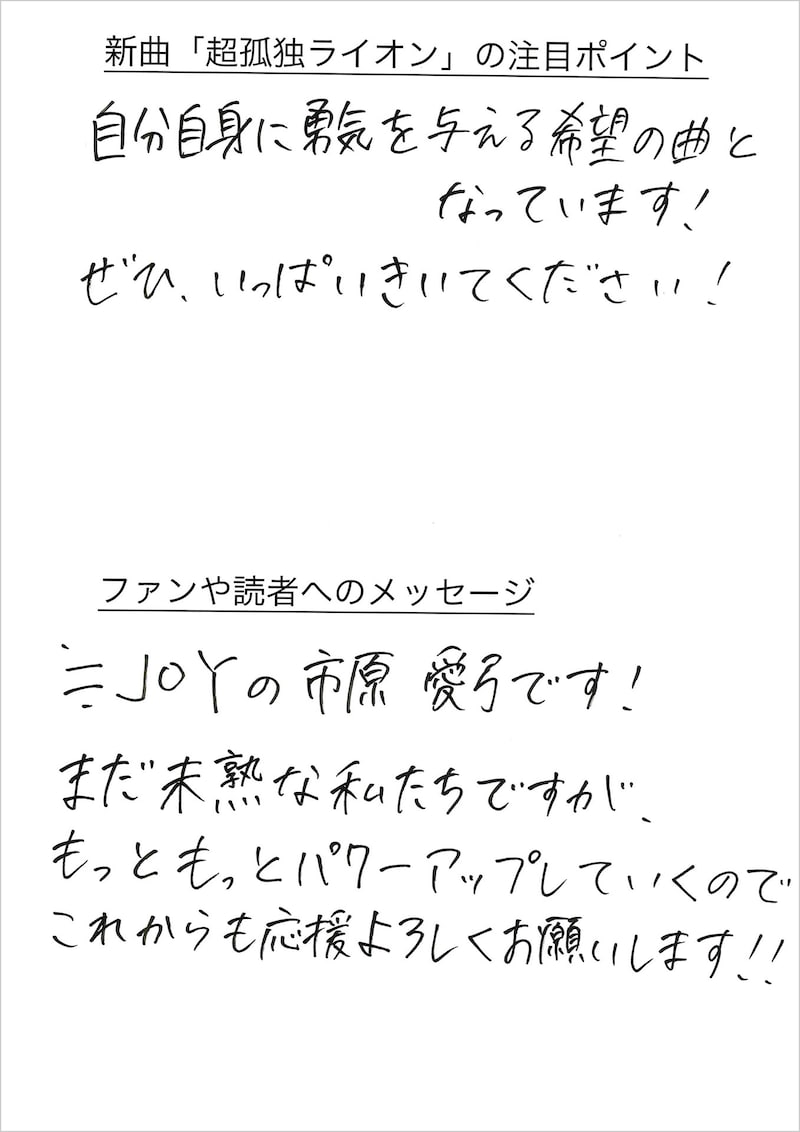 新曲「超孤独ライオン」の注目ポイント
自分自身に勇気を与える希望の曲と
なっています!
ぜひ、いっぱいきいてください!
ファンや読者へのメッセージ
≒JOYの市原 愛弓です!
まだ未熟な私たちですが、
もっともっとパワーアップしていくので
これからも応援よろしくお願いします!!